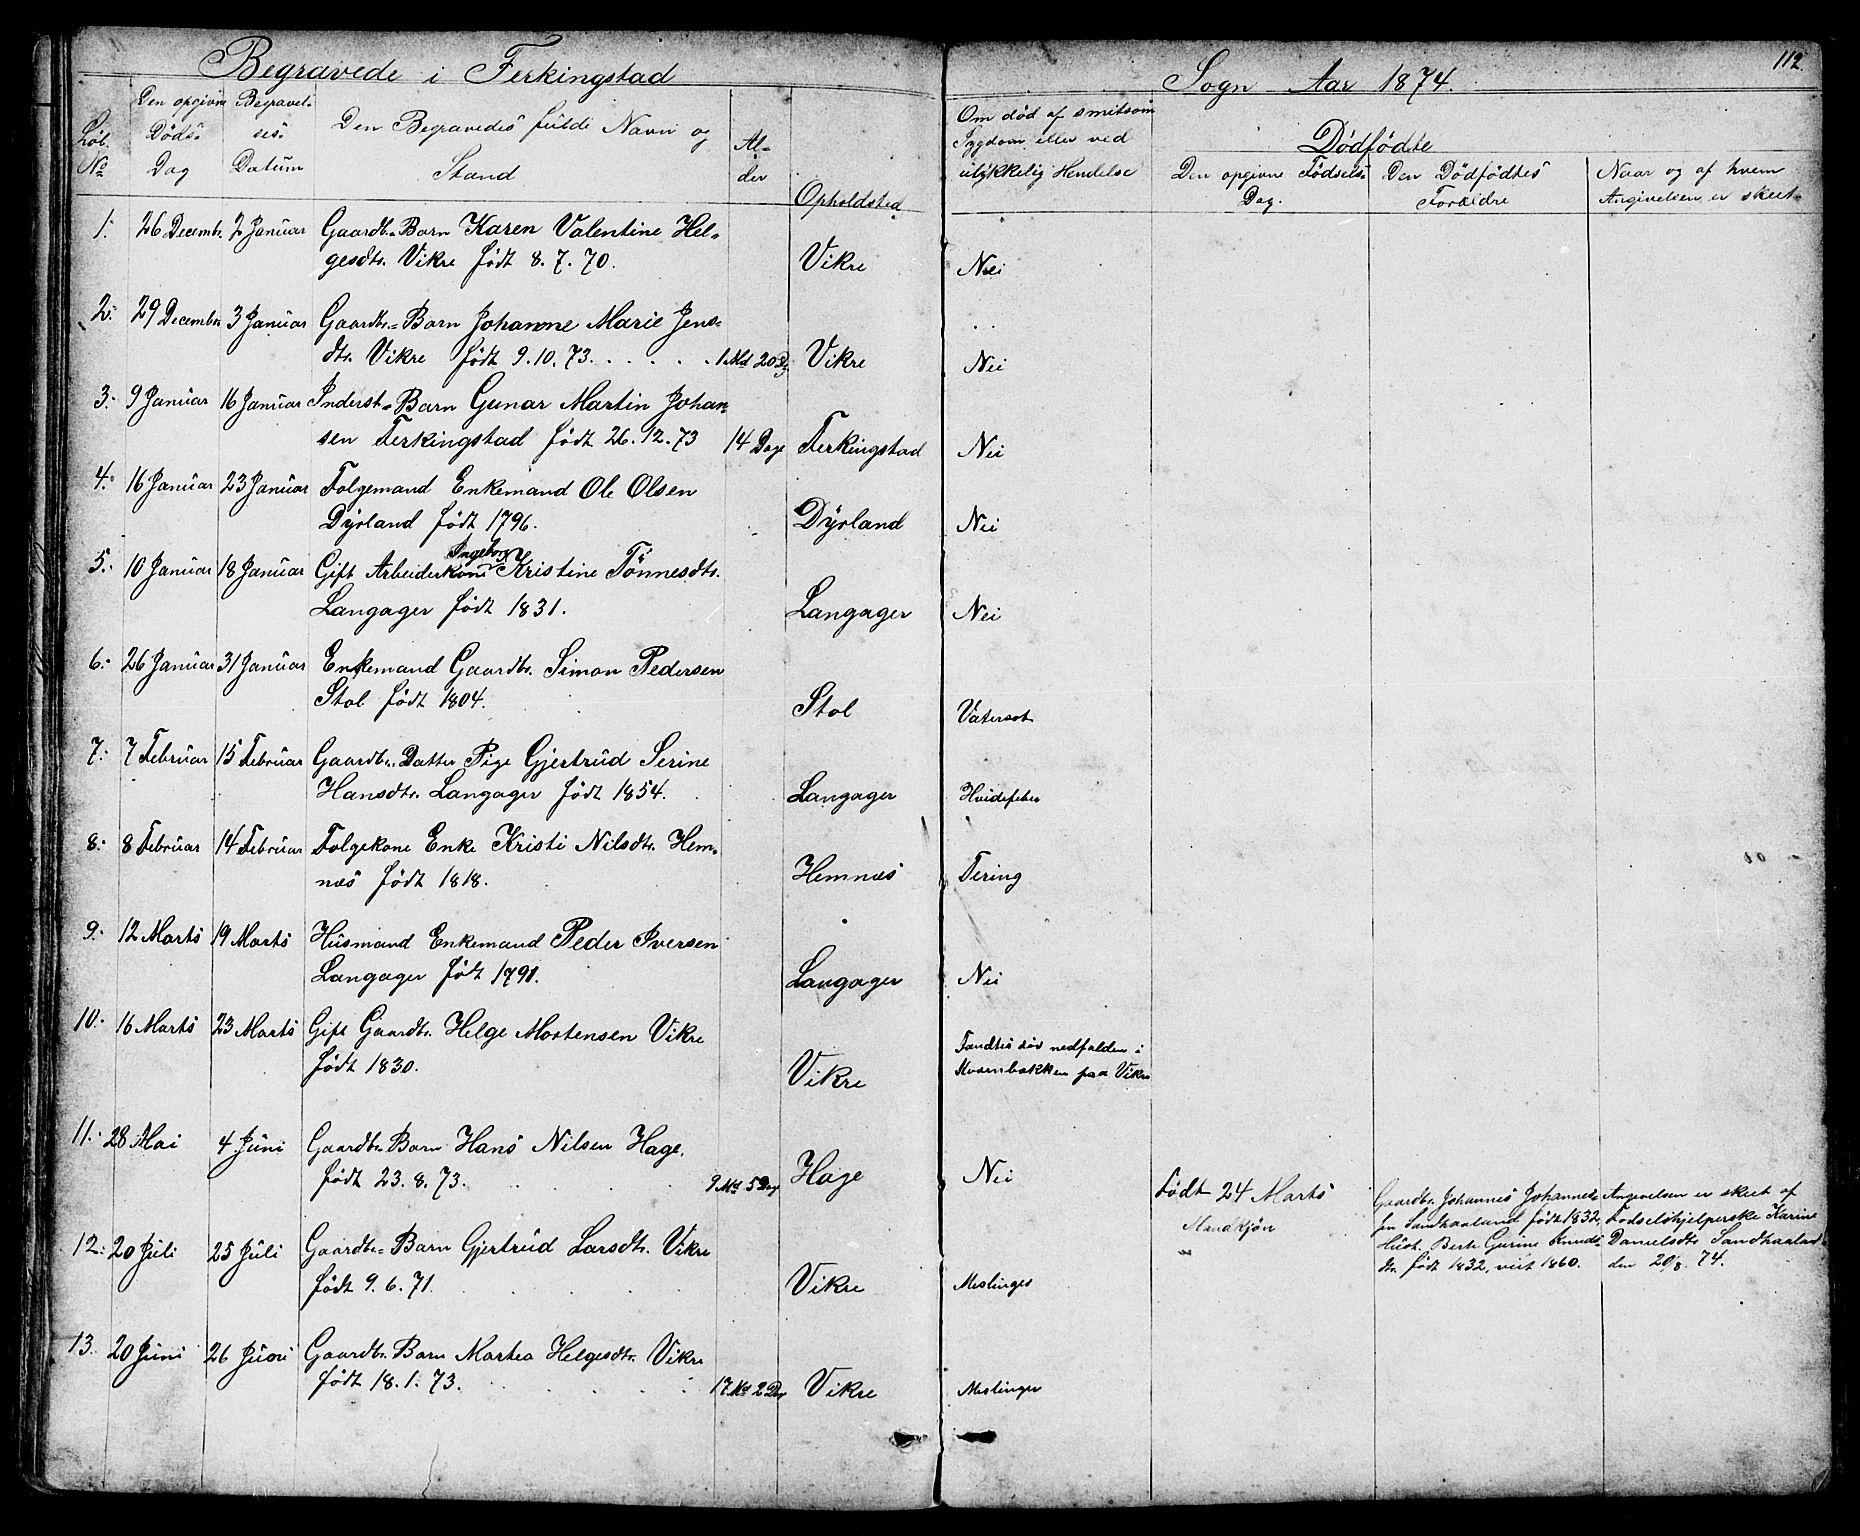 112.
Begravede i Ferkingstad Sogn Aar 1874.
Løb. No
Den opgivne Døds- Dag
Begravel- ses- Datum
Den Begravedes fulde Navn og Stand
Al- der
Opholdsted
Om død af smitsom Sygdom eller ved ulykkelig Hendelse
Dødfødte
Den opgivne Fødsels- Dag.
Den Dødfødtes Forældre
Naar og af hvem Angivelsen er skeet.
1. 26 Decembr. 2 Januar Gaardbr.= Barn Karen Valentine Hel-
gesdtr. Vikre født 8. 7. 70. Vikre Nei
2. 29 Decembr 3 Januar Gaardbr.= Barn Johanne Marie Jens-
dtr. Vikre født 9. 10. 73. 1 Md 20 Dg Vikre Nei
3. 9 Januar 16 Januar Inderst= Barn Gunar Martin Johan-
sen Ferkingstad født 26. 12. 73 14 Dage Ferkingstad Nei
4. 16 Januar 23 Januar Folgemand Enkemand Ole Olsen
Dyrland født 1796. Dyrland Nei
5. 10 Januar 18 Januar Gift Arbeiderkone Ingeborg Kristine Tönnesdtr.
Langager født 1831. Langager Nei
6. 26 Januar 31 Januar Enkemand Gaardbr. Simon Pedersen
Stol født 1804. Stol Vatersot
7. 7 Februar 15 Februar Gaardbr. Datter Pige Gjertrud Serine
Hansdtr. Langager født 1854. Langager Hvidefeber
8. 8 Februar 14 Februar Folgekone Enke Kristi Nilsdtr. Hem-
næs født 1818. Hemnæs Tering
9. 12 Marts 19 Marts Husmand Enkemand Peder Iversen
Langager født 1791. Langager Nei
10. 16 Marts 23 Marts Gift Gaardbr. Helge Mortensen Vikre
født 1830. Vikre Fandtes død nedfalden i
Kvernbækken paa Vikre
11. 28 Mai 4 Juni Gaardbr= Barn Hans Nilsen Hage.
født 23. 8. 73. 9 Md 5 Dag Hage Nei
Født 24 Marts
Mandkjøn
"
Gaardbr. Johannes Johannes-
sen Sandhaaland født 1832,
Hust. Berte Gurine Knuds-
dtr. født 1832, viet 1860.
Angivelsen er skeet af
Fødselshjelperske Karine
Danielsdtr Sandhaaland
den 20/8. 74.
12. 20 Juli 25 Juli Gaardbr= Barn Gjertrud Larsdtr. Vikre
født 9. 6. 71. Vikre Meslinger
13. 20 Juni 26 Juni Gaardbr. Barn Martea Helgesdtr. Vikre
født 18. 1. 73. 17 Md 2 Dag Vikre Meslinger